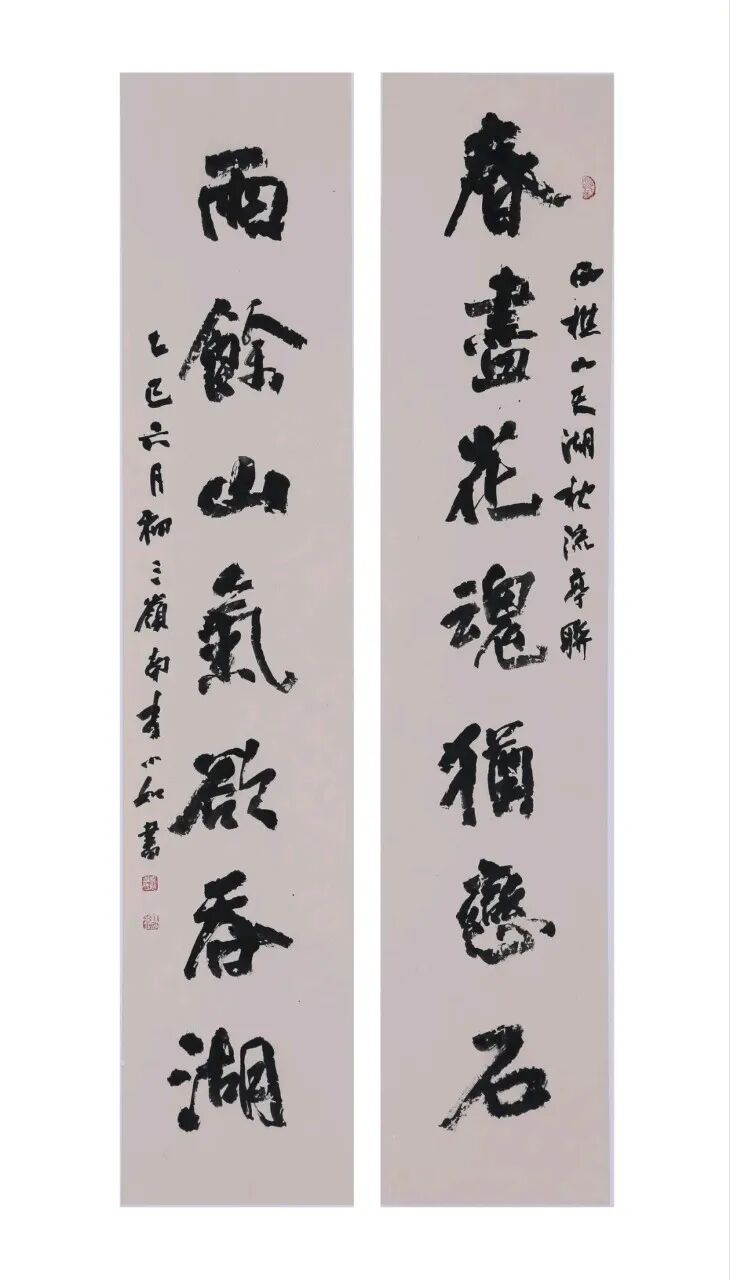 西樵山天湖枕流亭聯
春盡花魂猶戀石
雨餘山氣欲吞湖
乙巳六月初三嶺南李小如書